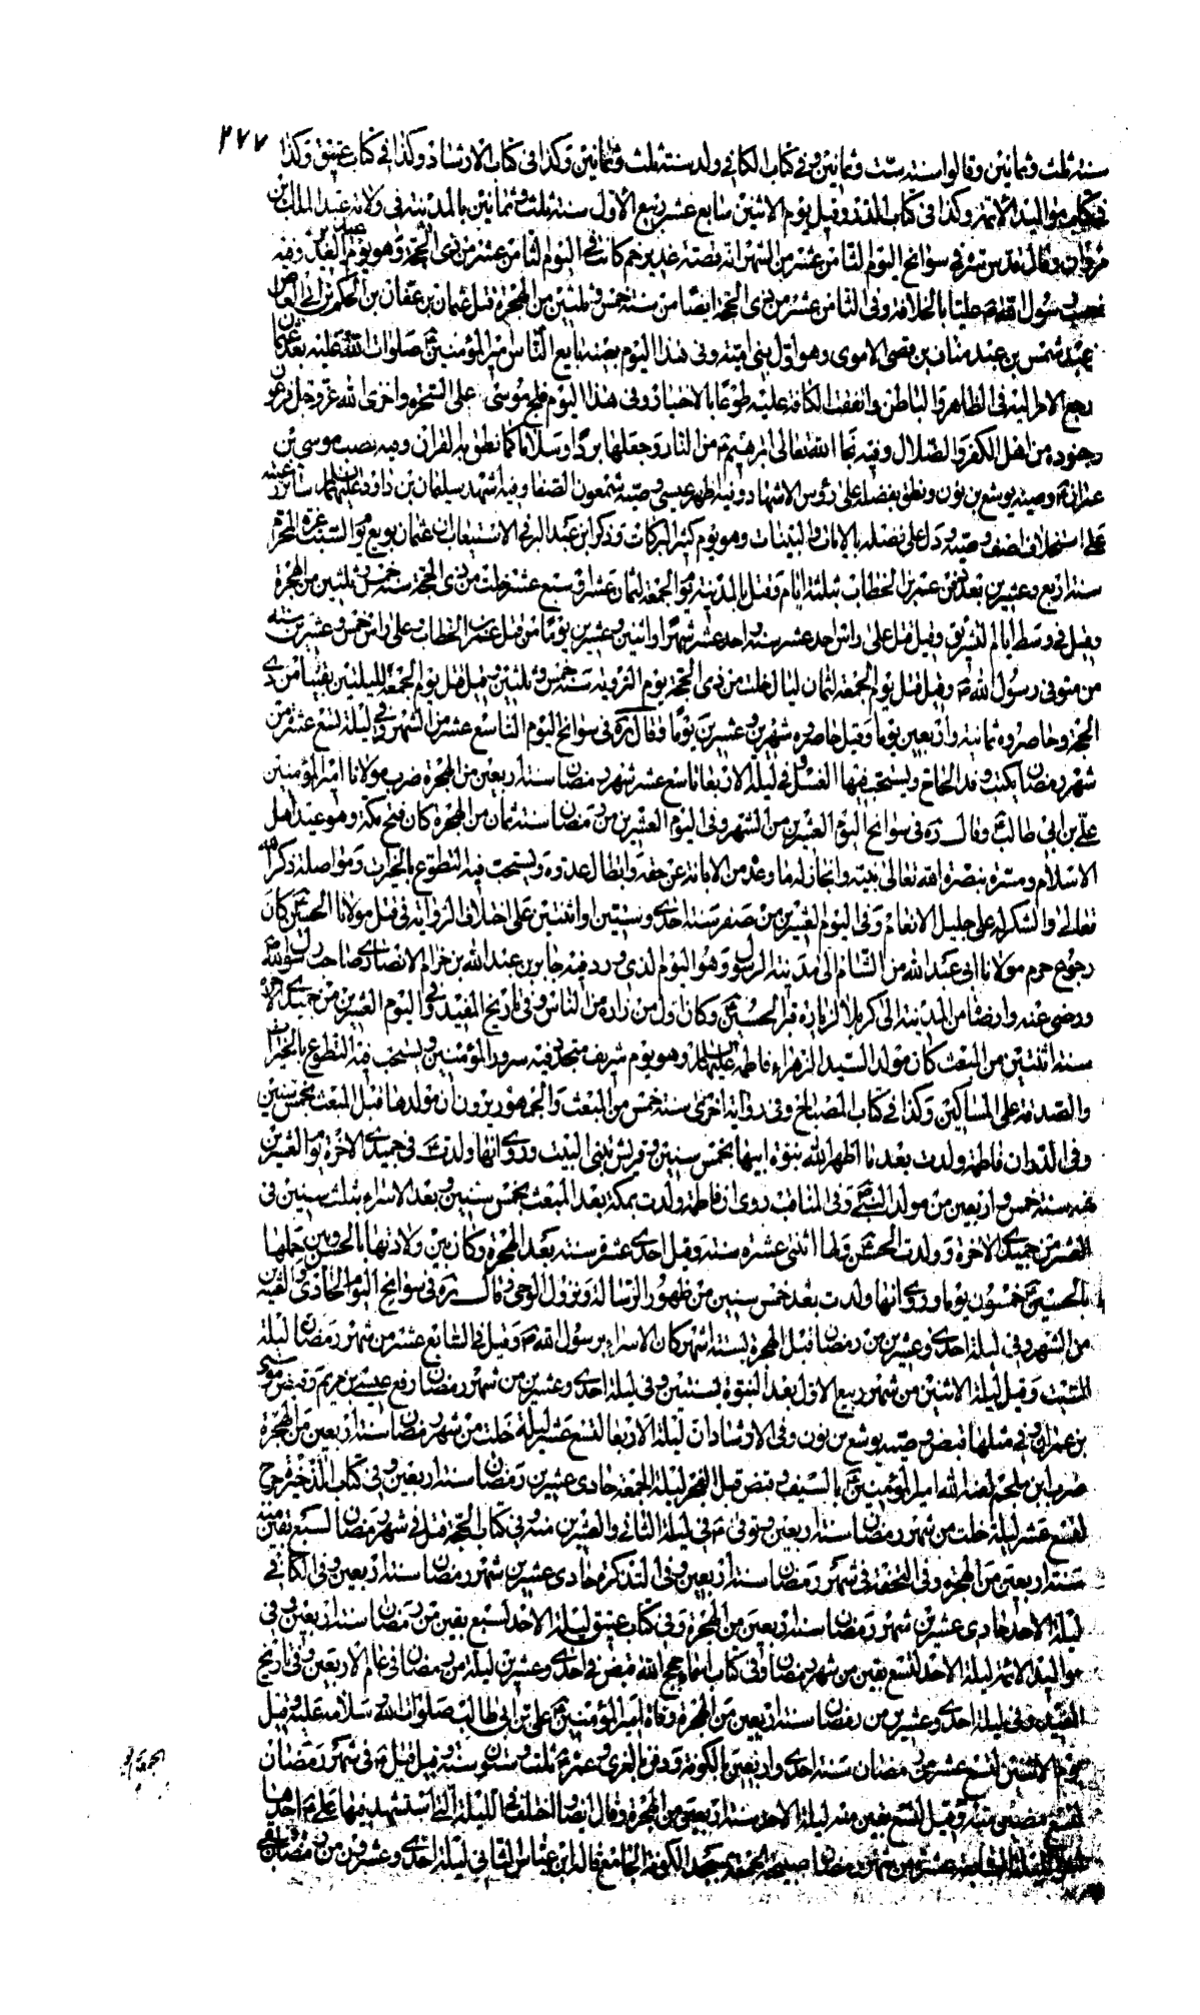 ٢٧٧
سنة ثلث وثمانين وقالوا سنة ست وثمانين وفي كتاب الكافي ولد سنة ثلث وثمانين وكذا في كتاب الارشاد وكذا في كتاب عتيق وكذا
في كتاب مواليد الائمة وكذا في كتاب الدر وقيل يوم الاثنين سابع عشر ربيع الأول سنة ثلث وثمانين بالمدينة في ولاية عبد الملك بن
مروان وقال قدس سره في سوانح اليوم الثامن عشر من الشهر انه قصة غدير خم كانت في اليوم الثامن عشر من ذي الحجة وهو يوم الغدير وفيه
نصب رسول الله ص عليا بالخلافة وفي الثامن عشر من ذي الحجة ايضا من سنة خمس وثلثين من الهجرة قتل عثمان بن عفان بن الحكم بن ابي العاص
عبد شمس بن عبد مناف بن قصي الاموي وهو اول بني امية وفي هذا اليوم بعينه بايع الناس امير المؤمنين ع صلوات الله عليه بعد عثمان
رجع الامر اليه في الظاهر والباطن واتفقت الكافة عليه طوعا بالاختيار وفي هذا اليوم فلج موسى على السحرة واخزى الله عز وجل فرعون
وجنوده من اهل الكفر والضلال وفيه نجا الله تعالى ابرهيم ع من النار وجعلها بردا وسلاما كما نطق به القران وفيه نصب موسى بن
عمران ع وصيه يوشع بن نون ونطق بفضله على رؤس الاشهاد وفيه اظهر عيسى وصيه شمعون الصفا وفيه اشهد سليمان بن داود عليهما السلام سائر رعيته
على استخلاف اصف وصيه ودل على فضله بالايات والبينات وهو يوم كثير البركات وذكر ابن عبد البر في الاستيعاب ان عثمان بويع يوم السبت غرة المحرم
سنة اربع وعشرين بعد دفن عمر بن الخطاب بثلثة ايام وقتل بالمدينة يوم الجمعة لثمان عشر او سبع عشر خلت من ذي الحجة سنة خمس وثلثين من الهجرة
وقيل في وسط ايام التشريق وقيل قتل على راس احد عشر سنة واحد عشر شهرا واثنين وعشرين يوما من قتل عمر بن الخطاب وعلى راس خمس وعشرين سنة
من متوفى رسول الله ص وقيل قتل يوم الجمعة لثمان ليال خلت من ذي الحجة يوم التروية سنة خمس وثلثين وقيل قتل يوم الجمعة لليلتين بقيتا من ذي
الحجة وحاصروه ثمانية واربعين يوما وقيل حاصروه شهرين وعشرين يوما وقال ره في سوانح اليوم التاسع عشر من الشهر في ليلة تسع عشر من
شهر رمضان يكتب وفد الحاج ويستحب فيها الغسل وفي ليلة الاربعا تاسع عشر شهر رمضان سنة اربعين من الهجرة ضرب مولانا امير المؤمنين
علي بن ابي طالب ع وقال ره في سوانح اليوم العشرين من الشهر وفي اليوم العشرين من رمضان سنة ثمان من الهجرة كان فتح مكة وهو عيد اهل
الاسلام ومسرة بنصرة الله تعالى نبيه وانجازه له ما وعد من الابانة عن حقه وابطال عدوه ويستحب فيه التطوع بالخيرات ومواصلة ذكر الله
تعالى والشكر له على جليل الانعام وفي اليوم العشرين من صفر سنة احدى وستين او اثنتين على اختلاف الرواية في قتل مولانا الحسين ع كان
رجوع حرم مولانا ابي عبد الله من الشام الى مدينة الرسول وهو اليوم الذي ورد فيه جابر بن عبد الله بن حزام الانصاري صاحب رسول الله
ورضي عنه وارضا من المدينة الى كربلا لزيارة قبر الحسين ع وكان اول من زاره من الناس وفي تاريخ المفيد وفي اليوم العشرين من جميدى الاخرة
سنة اثنتين من المبعث كان مولد السيدة الزهراء فاطمة عليها السلام وهو يوم شريف متجدد فيه سرور المؤمنين ويستحب فيه التطوع بالخيرات
والصدقة على المساكين وكذا في كتاب المصباح وفي رواية اخرى سنة خمس من المبعث والجمهور يرون ان مولدها قبل المبعث بخمس سنين
وفي الديوان فاطمة ولدت بعد ما اظهر الله نبوة ابيها بخمس سنين وقريش تبني البيت وروي انها ولدت ع في جميدى الاخرة يوم العشرين
منه سنة خمس واربعين من مولد النبي ص وفي المناقب روي ان فاطمة ولدت بمكة بعد المبعث بخمس سنين وبعد الاسراء بثلث سنين في
العشرين من جميدى الاخرة وولدت الحسن ع ولها اثنى عشرة سنة وقيل احدى عشر سنة بعد الهجرة وكان بين ولادتها بالحسن وبين حملها
بالحسين ع خمسون يوما وروي انها ولدت بعد خمس سنين من ظهور الرسالة ونزول الوحي وقال ره في سوانح اليوم الحادي والعشرين
من الشهر وفي ليلة احدى وعشرين من رمضان قبل الهجرة بستة اشهر كان الاسراء برسول الله ص وقيل في السابع عشر من شهر رمضان ليلة
السبت وقيل ليلة الاثنين من شهر ربيع الاول بعد النبوة بسنتين وفي ليلة احدى وعشرين من شهر رمضان رفع عيسى بن مريم وقبض موسى
بن عمران وفي مثلها قبض وصيه يوشع بن نون وفي الارشاد ان ليلة الاربعا لتسع عشر ليلة خلت من شهر رمضان سنة اربعين من الهجرة
ضرب ابن ملجم لعنه الله امير المؤمنين ع بالسيف وقبض قبل الفجر ليلة الجمعة حادي عشرين رمضان سنة اربعين وفي كتاب الذخيرة جرح
لتسع عشر ليلة خلت من شهر رمضان سنة اربعين وتوفي ع في ليلة الثاني والعشرين منه وفي كتاب الحجة قتل في شهر رمضان لسبع بقين منه
سنة اربعين من الهجرة وفي التحفة في شهر رمضان سنة اربعين وفي التذكرة حادي عشرين شهر رمضان سنة اربعين وفي الكافي
ليلة الاحد حادي عشرين شهر رمضان سنة اربعين من الهجرة وفي كتاب عتيق ليلة الاحد لسبع بقين من رمضان سنة اربعين وفي
مواليد الائمة ليلة الاحد لتسع بقين من شهر رمضان وفي كتاب اسماء حجج الله قبض في احدى وعشرين ليلة من رمضان في عام الاربعين وفي تاريخ
المفيد وفي ليلة احدى وعشرين من رمضان سنة اربعين من الهجرة وفاة امير المؤمنين ع علي بن ابي طالب صلوات الله وسلامه عليه وقيل
يوم الاثنين لتسع عشر من رمضان سنة احدى واربعين بالكوفة ودفن بالغري وعمره ثلث وستون سنة وقيل قتل ع في شهر رمضان
لتسع مضين منه وقيل لتسع بقين منه ليلة الاحد سنة اربعين من الهجرة وقال ايضا اختلف في الليلة التي استشهد فيها علي ع احدها
الليلة السابعة عشر من شهر رمضان صبيحة الجمعة بمسجد الكوفة الجامع قاله ابن عباس الثاني ليلة احدى وعشرين من رمضان